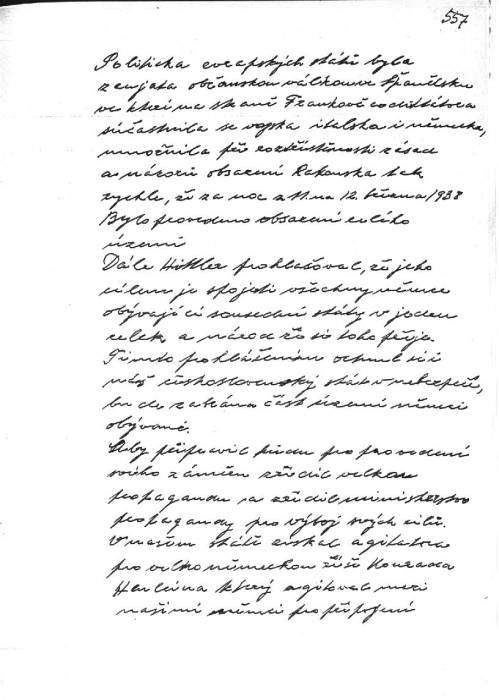 557
Politicka evropských států byla
zaujata občanskou válkou ve Španělsku
ve které na straně Frankově co diktátora
súčastnila se vojska italska i německa,
umožnila při roztříštěnosti zásad
a názorů obsazení Rakouska tak
rychle, že za noc z 11. na 12. března 1938
Bylo provedeno obsazení celého
území
Dále Hittler prohlašoval, že jeho
cílem je spojiti všechny němce
obývající sousední státy v jeden
celek, a národ že si toho přeje.
Tímto prohlášením octnul se i
náš československý stát v nebezpečí,
bude zabrána část území němci
obývané.
Aby připravil půdu pro provedení
svého záměru zřídil velkou
propagandu a zřídil ministerstvo
propagandy pro výboj svých cílů.
V našem státě získal agitatora
pro velkoněmeckou říši Konrada
Henleina který agitoval mezi
našimi němci pro připojení